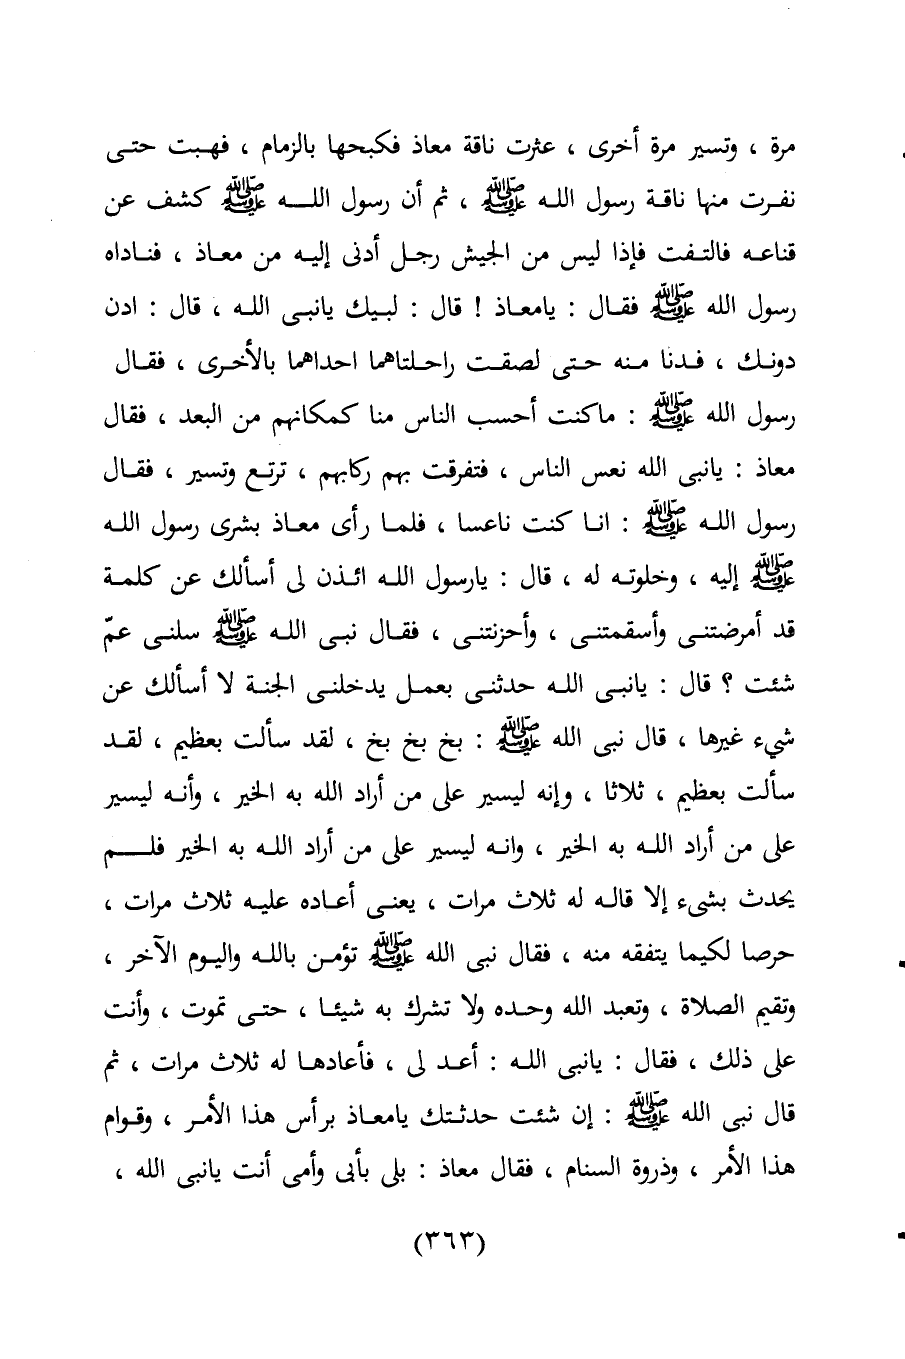 مرة ، وتسير مرة أخرى ، عثرت ناقة معاذ فكبحها بالزمام ، فهبت حتى
نفرت منها ناقة رسول الله ﷺ ، ثم أن رسول الله ﷺ كشف عن
قناعه فالتفت فإذا ليس من الجيش رجل أدنى إليه من معاذ ، فناداه
رسول الله ﷺ فقال : يامعاذ ! قال : لبيك يانبى الله ، قال : ادن
دونك ، فدنا منه حتى لصقت راحلتاهما احداهما بالأخرى ، فقال
رسول الله ﷺ : ماكنت أحسب الناس منا كمكانهم من البعد ، فقال
معاذ : يانبى الله نعس الناس ، فتفرقت بهم ركابهم ، ترتع وتسير ، فقال
رسول الله ﷺ : انا كنت ناعسا ، فلما رأى معاذ بشرى رسول الله
ﷺ إليه ، وخلوته له ، قال : يارسول الله ائذن لى أسألك عن كلمة
قد أمرضتنى وأسقمتنى ، وأحزنتنى ، فقال نبى الله ﷺ سلنى عمّ
شئت ؟ قال : يانبى الله حدثنى بعمل يدخلنى الجنة لا أسألك عن
شيء غيرها ، قال نبى الله ﷺ : بخ بخ بخ ، لقد سألت بعظيم ، لقد
سألت بعظيم ، ثلاثا ، وإنه ليسير على من أراد الله به الخير ، وأنه ليسير
على من أراد الله به الخير ، وانه ليسير على من أراد الله به الخير فلم
يحدث بشىء إلا قاله له ثلاث مرات ، يعنى أعاده عليه ثلاث مرات ،
حرصا لكيما يتفقه منه ، فقال نبى الله ﷺ تؤمن بالله واليوم الآخر ،
وتقيم الصلاة ، وتعبد الله وحده ولا تشرك به شيئا ، حتى تموت ، وأنت
على ذلك ، فقال : يانبى الله : أعد لى ، فأعادها له ثلاث مرات ، ثم
قال نبى الله ﷺ : إن شئت حدثتك يامعاذ برأس هذا الأمر ، وقوام
هذا الأمر ، وذروة السنام ، فقال معاذ : بلى بأبى وأمى أنت يانبى الله ،
(٣٦٣)